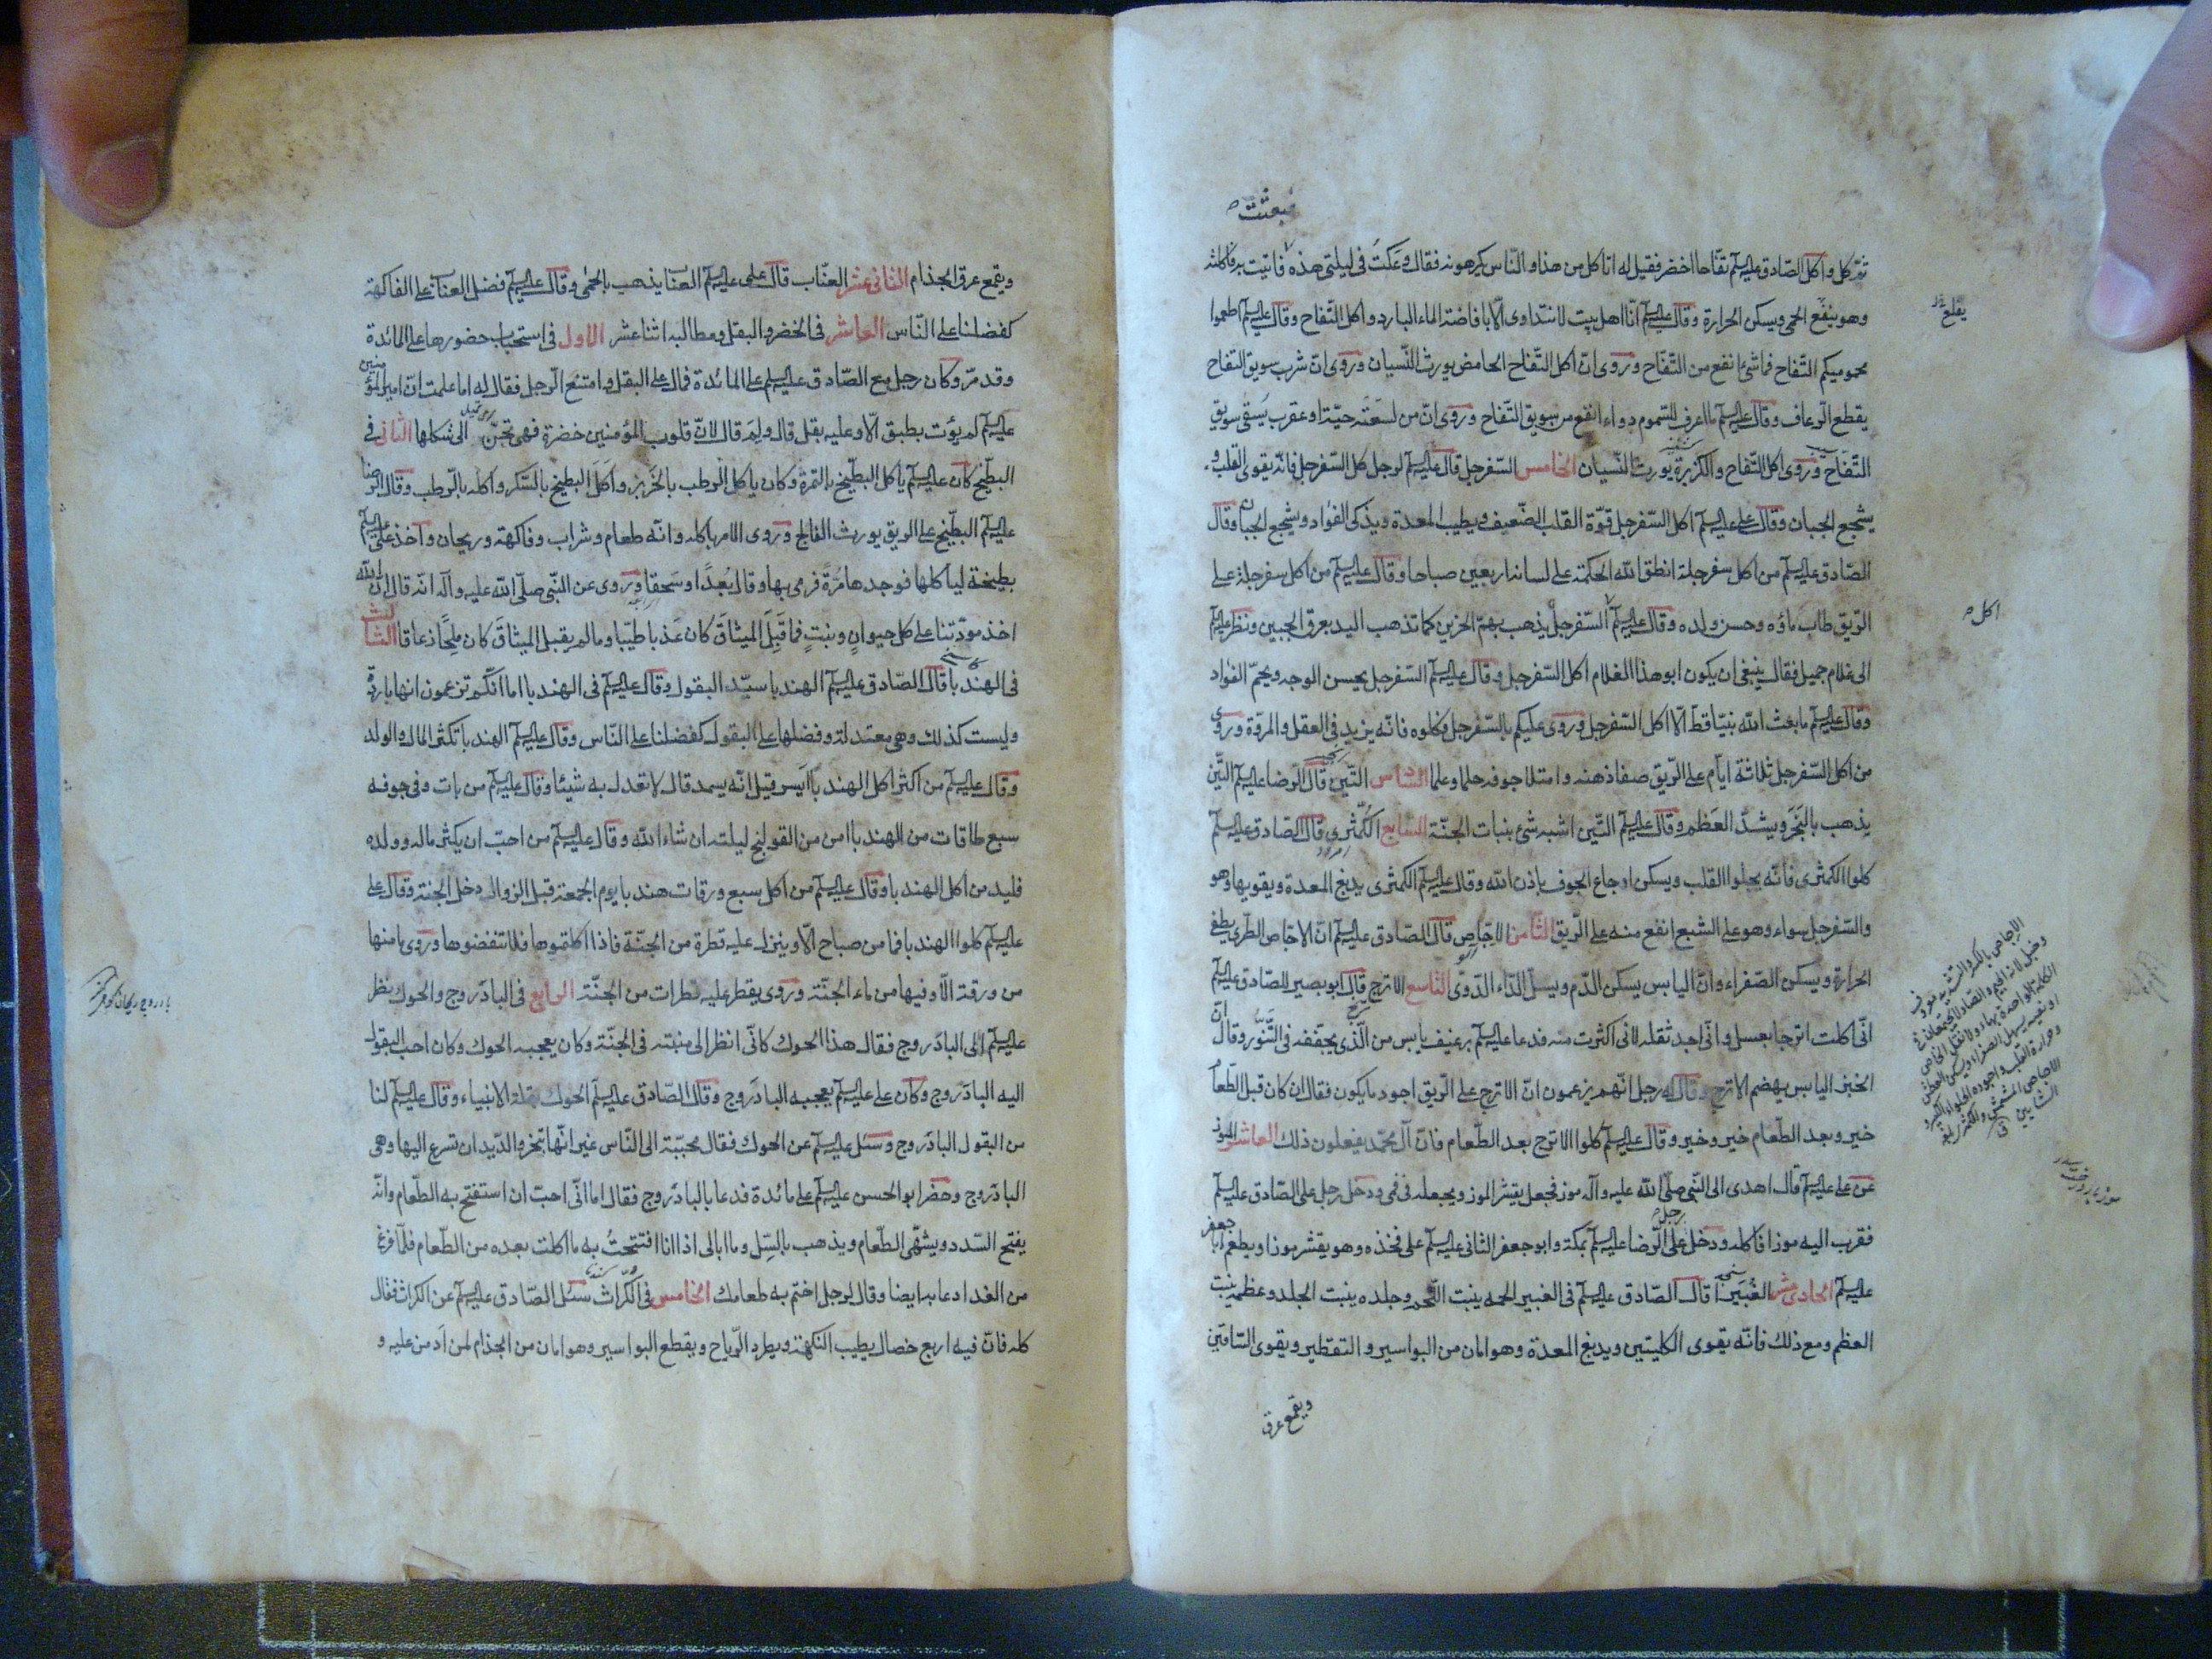 فبعثت
ثم كل واكل الصادق عليه السلم تفاحا اخضر فقيل له اتاكل من هذا والناس يكرهونه فقال وعكت في ليلتي هذه فاتيت به فاكلته
وهو ينفع الحمى ويسكن الحرارة وقال عليه السلم انا اهل بيت لا نتداوى الا بافاضة الماء البارد واكل التفاح وقال عليه السلم اطعموا
يقلع
محموميكم التفاح فما شيء انفع من التفاح وروى ان اكل التفاح الحامض يورث النسيان وروى ان شرب سويق التفاح
يقطع الرعاف وقال عليه السلم ما اعرف للسموم دواء انفع من سويق التفاح وروى ان من لسعته حية او عقرب يسقى سويق
التفاح وروى اكل التفاح والكزبرة يورث النسيان الخامس السفرجل قال عليه السلم لرجل كل السفرجل فانه يقوى القلب و
يشجع الجبان وقال علي عليه السلم اكل السفرجل قوة القلب الضعيف ويطيب المعدة ويذكى الفؤاد ويشجع الجبان وقال
الصادق عليه السلم من اكل سفرجلة انطق الله الحكمة على لسانه اربعين صباحا وقال عليه السلم من اكل سفرجلة على
الريق طاب ماؤه وحسن ولده وقال عليه السلم السفرجل يذهب بهم الحزين كما تذهب اليد بعرق الجبين ونظر عليه السلم
اكل
الى غلام جميل فقال ينبغى ان يكون ابو هذا الغلام اكل السفرجل وقال عليه السلم السفرجل يحسن الوجه ويجم الفؤاد
وقال عليه السلم ما بعث الله نبيا قط الا اكل السفرجل وروى عليكم بالسفرجل فكلوه فانه يزيد في العقل والمروة وروى
من اكل السفرجل ثلاثة ايام على الريق صفا ذهنه وامتلا جوفه حلما وعلما السادس التين قال الرضا عليه السلم التين
يذهب بالبخر ويشد العظم وقال عليه السلم التين اشبه شيء بنبات الجنة السابع الكمثرى قال الصادق عليه السلم
امرود
كلوا الكمثرى فانه يجلوا القلب ويسكن اوجاع الجوف باذن الله وقال عليه السلم الكمثرى يدبغ المعدة ويقويها وهو
والسفرجل سواء وهو على الشبع انفع منه على الريق الثامن الاجاص قال الصادق عليه السلم ان الاجاص الطرى يطفى
الحرارة ويسكن الصفراء وان اليابس يسكن الدم ويسل الداء الدوى التاسع الاترج قال ابو بصير للصادق عليه السلم
انى اكلت اترجا بعسل وانى اجد ثقله لانى اكثرت منه فدعا عليه السلم برغيف يابس من الذى يجففه في التنور وقال ان
الخبز اليابس يهضم الاترج وقال له رجل انهم يزعمون ان الاترج على الريق اجود ما يكون فقال ان كان قبل الطعام
خير وبعد الطعام خير وخير وقال عليه السلم كلوا الاترج بعد الطعام فان آل محمد يفعلون ذلك العاشر الموز
عن علي عليه السلم قال اهدى الى النبي صلى الله عليه وآله موز فجعل يقشر الموز ويجعله في فمى ودخل رجل على الصادق عليه السلم
فقرب اليه موزا فاكله ودخل رجل على الرضا عليه السلم بمكة وابو جعفر الثانى عليه السلم على فخذه وهو يقشر موزا ويطعم ابا جعفر
عليه السلم الحادى عشر الغبيرا قال الصادق عليه السلم في الغبيرا لحمه ينبت اللحم وجلده ينبت الجلد وعظمه ينبت
العظم ومع ذلك فانه يقوى الكليتين ويدبغ المعدة وهو امان من البواسير والتقطير ويقوى الساقين
ويقمع عرق
ويقمع عرق الجذام الثانى عشر العناب قال علي عليه السلم العناب يذهب بالحمى وقال عليه السلم فضل العناب على الفاكهة
كفضلنا على الناس العاشر في الخضر والبقل ومطالبه اثنا عشر الاول في استحباب حضورها على المائدة
وقد مر وكان رجل مع الصادق عليه السلم على المائدة فمال على البقل وامتنع الرجل فقال له اما علمت ان امير المؤمنين
عليه السلم لم يؤت بطبق الا وعليه بقل قال ولم قال لان قلوب المؤمنين خضرة فهى تحن الى شكلها الثانى في
البطيخ كان عليه السلم ياكل البطيخ بالتمر وكان ياكل الرطب بالخربز واكل البطيخ بالسكر واكله بالرطب وقال الرضا
عليه السلم البطيخ على الريق يورث الفالج وروى الامر باكله وانه طعام وشراب وفاكهة وريحان واخذ علي عليه السلم
بطيخة لياكلها فوجدها مرة فرمى بها وقال بعدا وسحقا وروى عن النبي صلى الله عليه وآله انه قال ان الله
اخذ مودتنا على كل حيوان ونبت فما قبل الميثاق كان عذبا طيبا وما لم يقبل الميثاق كان ملحا زعاقا الثالث
في الهندبا قال الصادق عليه السلم الهندبا سيد البقول وقال عليه السلم في الهندبا اما انكم تزعمون انها باردة
وليست كذلك وهى معتدلة وفضلها على البقول كفضلنا على الناس وقال عليه السلم الهندبا تكثر المال والولد
وقال عليه السلم من اكثر اكل الهندبا ايسر قيل انه يسمد قال لا تعدل به شيئا وقال عليه السلم من بات وفى جوفه
سبع طاقات من الهندبا امن من القولنج ليلته ان شاء الله وقال عليه السلم من احب ان يكثر ماله وولده
فليدمن اكل الهندبا وقال عليه السلم من اكل سبع ورقات هندبا يوم الجمعة قبل الزوال دخل الجنة وقال علي
عليه السلم كلوا الهندبا فما من صباح الا وينزل عليه قطرة من الجنة فاذا اكلتموها فلا تنفضوها وروى ما منها
من ورقة الا وفيها من ماء الجنة وروى يقطر عليه قطرات من الجنة الرابع في الباذروج والحوك نظر
عليه السلم الى الباذروج فقال هذا الحوك كانى انظر الى منبته في الجنة وكان يعجبه الحوك وكان احب البقول
اليه الباذروج وكان علي عليه السلم يعجبه الباذروج وقال الصادق عليه السلم الحوك بقلة الانبياء وقال عليه السلم لنا
من البقول الباذروج وسئل عليه السلم عن الحوك فقال محببة الى الناس غير انها تبخر والديدان تسرع اليها وهى
الباذروج وحضر ابو الحسن عليه السلم على مائدة فدعا بالباذروج فقال اما انى احب ان استفتح به الطعام وانه
يفتح السدد ويشهى الطعام ويذهب بالسل وما ابالى اذا انا افتتحت به ما اكلت بعده من الطعام فلما فرغ
من الغدا دعا به ايضا وقال لرجل اختم به طعامك الخامس في الكراث سئل الصادق عليه السلم عن الكراث فقال
كله فان فيه اربع خصال يطيب النكهة ويطرد الرياح ويقطع البواسير وهو امان من الجذام لمن ادمن عليه و